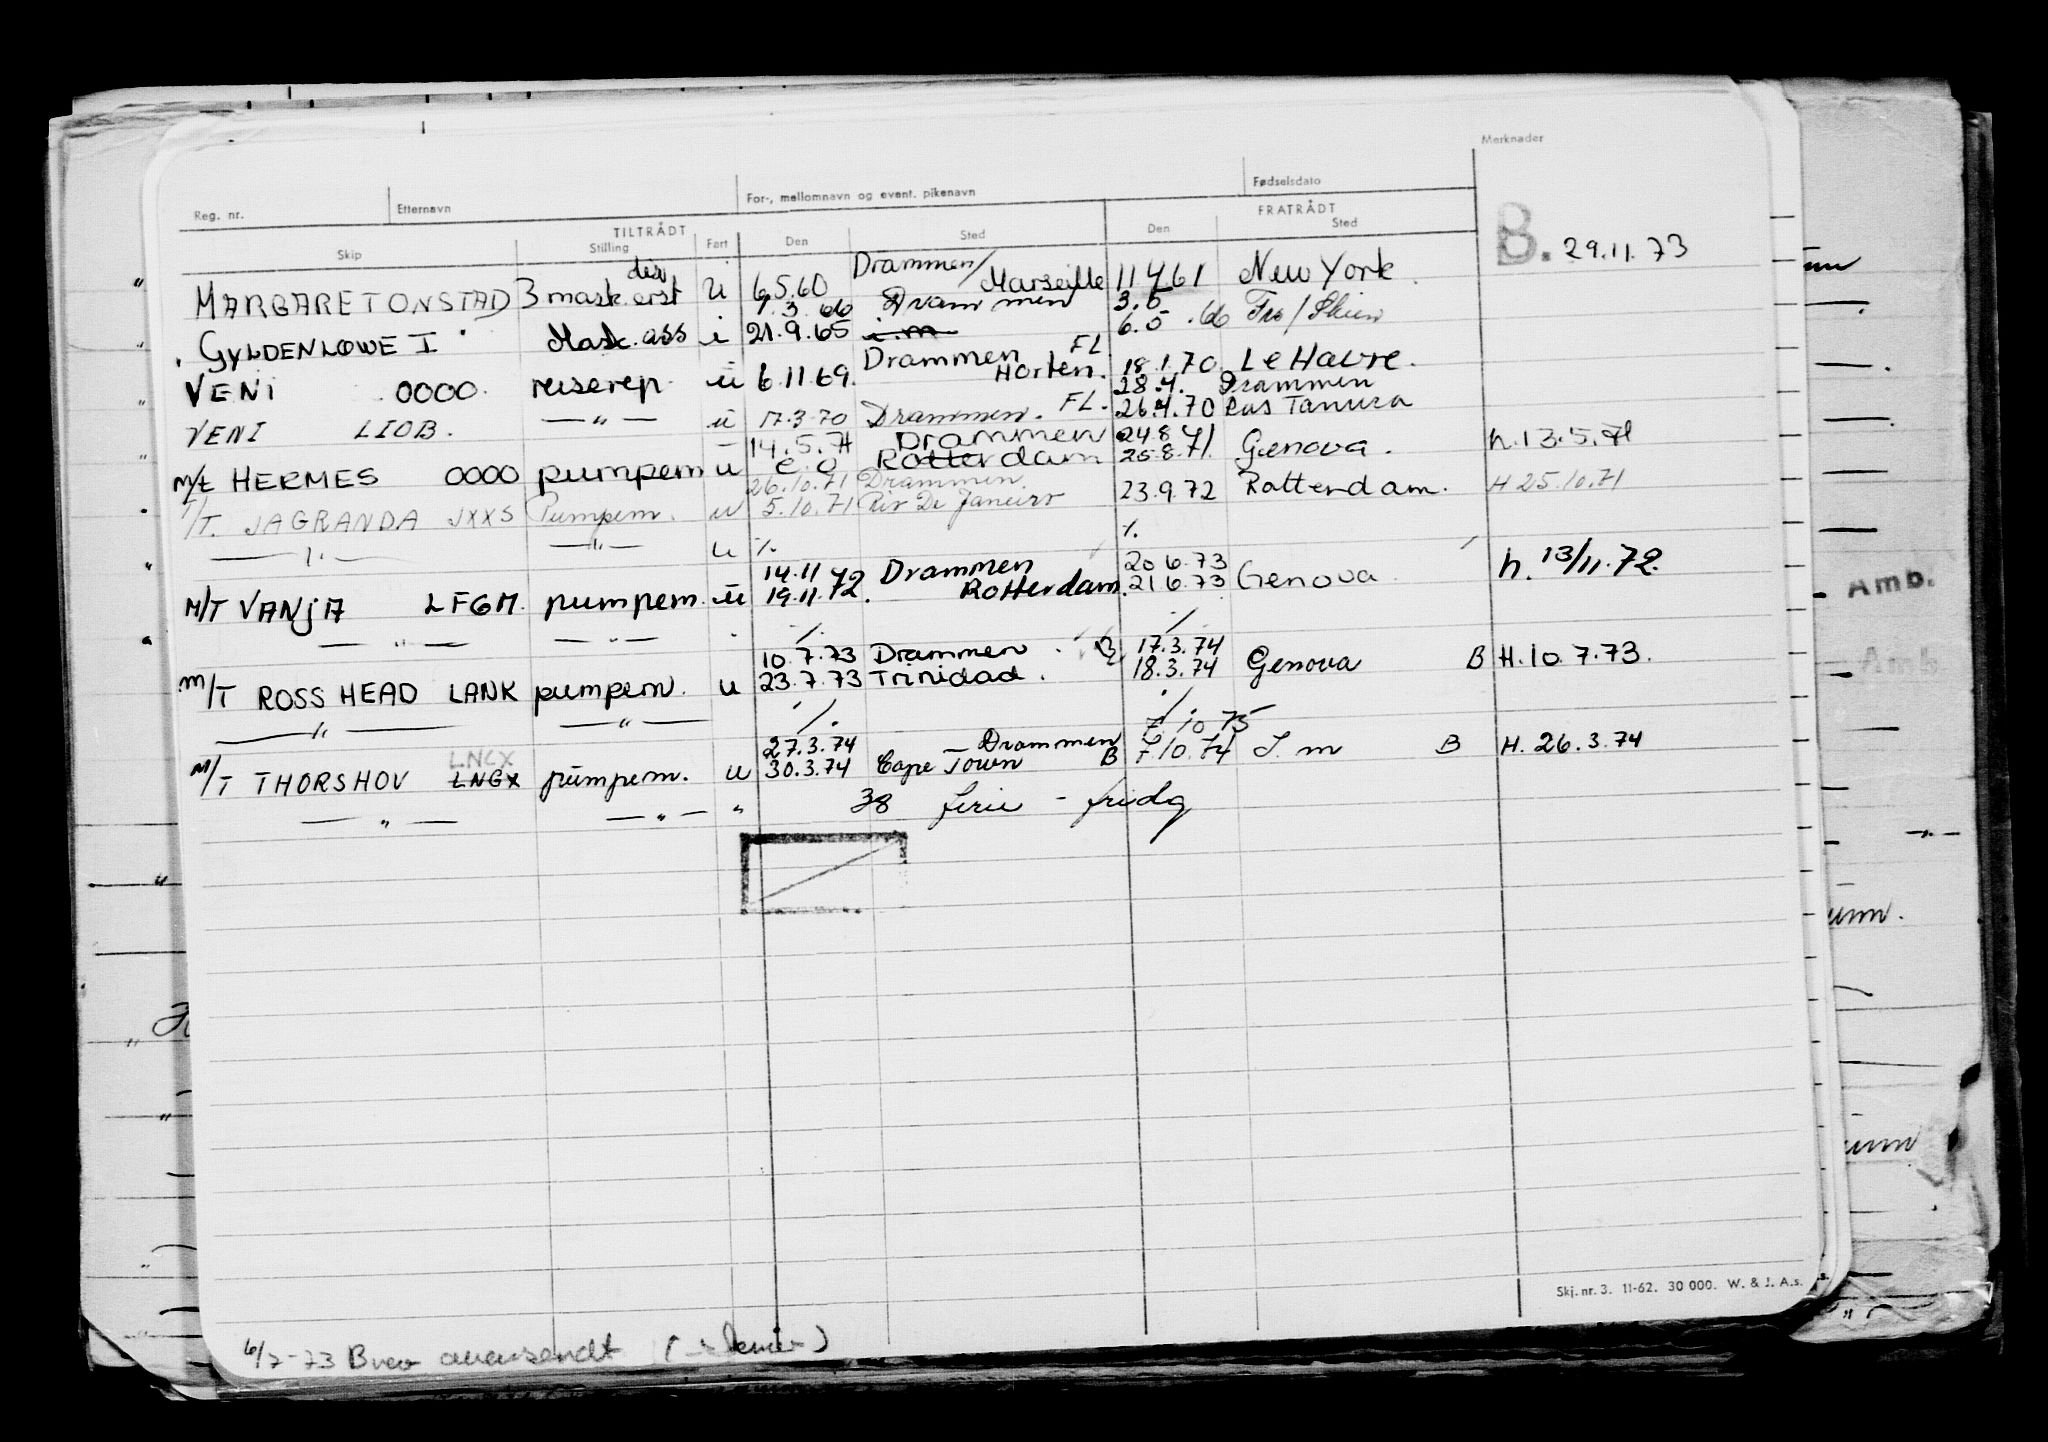 Merknader
Reg. nr. Etternavn For-, mellomnavn og event. pikenavn Fødselsdato
TILTRÅDT FRATRÅDT
Skip Stilling Fart Den Sted Den Sted
B. 29.11.73
Drammen/
MARGARET ONSTAD 3 mask. u 6.5.60 Marseille 11 4 61 New York
1.3.66 Drammen 3.5
GYLDENLØWE I Mask. ass i 21.9.65 i.m 6.5.66 / Skien
Drammen FL
VENI 0000 reiserep. u 6.11.69. Horten. 18.1.70 Le Havre.
28.4. Drammen
VENI LIOB. — " — u 17.3.70 Drammen. FL. 26.4.70 Ras Tanura
14.5.71 Drammen 24.8.71
M/T HERMES 0000 pumpem u Rotterdam 25.8.71. Genova. h.13.5.71
26.10.71 Drammen.
T/T. JAGRANDA JXXS Pumpem. u 5.10.71 Rio De Janeiro 23.9.72 Rotterdam. H 25.10.71
— " — — " — u %. %.
14.11 72 Drammen 20.6.73
M/T VANJA LFGM. pumpem. u 19.11.72. Rotterdam. 21.6.73 Genova h. 13/11.72.
— " — — " — " % %
10.7.73 Drammen. B 17.3.74
M/T ROSS HEAD LANK pumpem. u 23.7.73 Trinidad. 18.3.74 Genova B H.10.7.73.
— " — — " — %. %.
27.3.74 Drammen 7.10.75
LNCX
M/T THORSHOV LNGX pumpem. u 30.3.74 Cape Town B 7.10.74 I.m B H. 26.3.74
— " — — " — " 38 ferie - fridg
Amb.
Amb.
Skj. nr. 3. 11-62. 30 000. W. & J. A.s.
6/7-73 Brev avansendt